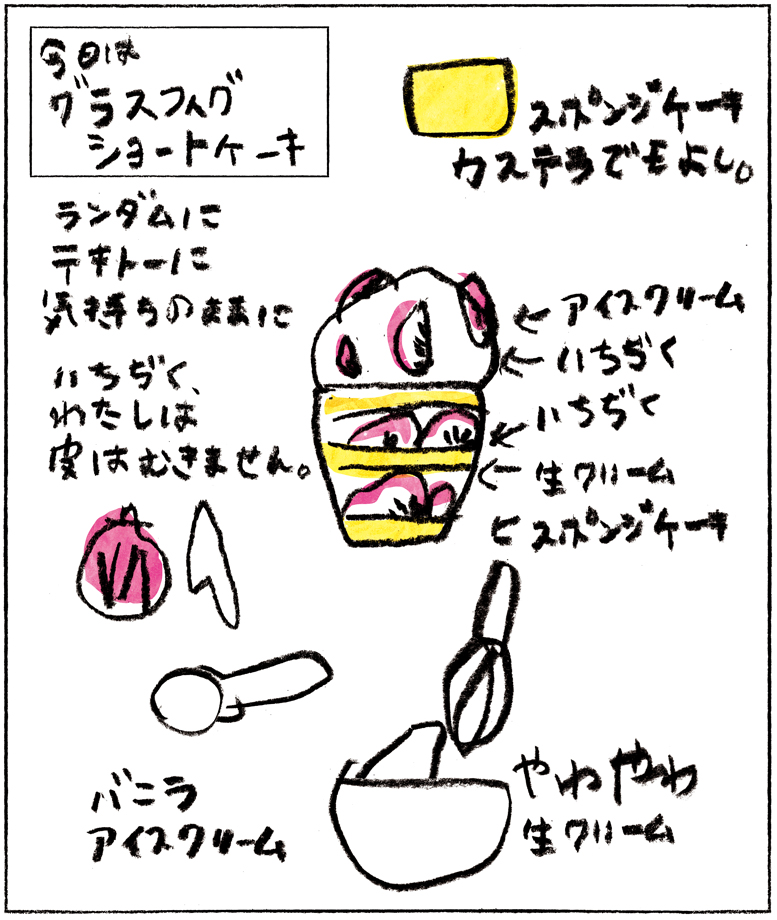 今日は
グラスフィグ
ショートケーキ
スポンジケーキ
カステラでもよし。
ランダムに
テキトーに
気持ちのままに
いちぢく、
わたしは
皮はむきません。
←アイスクリーム
←いちぢく
いちぢく
←生クリーム
←スポンジケーキ
バニラ
アイスクリーム
やわやわ
生クリーム